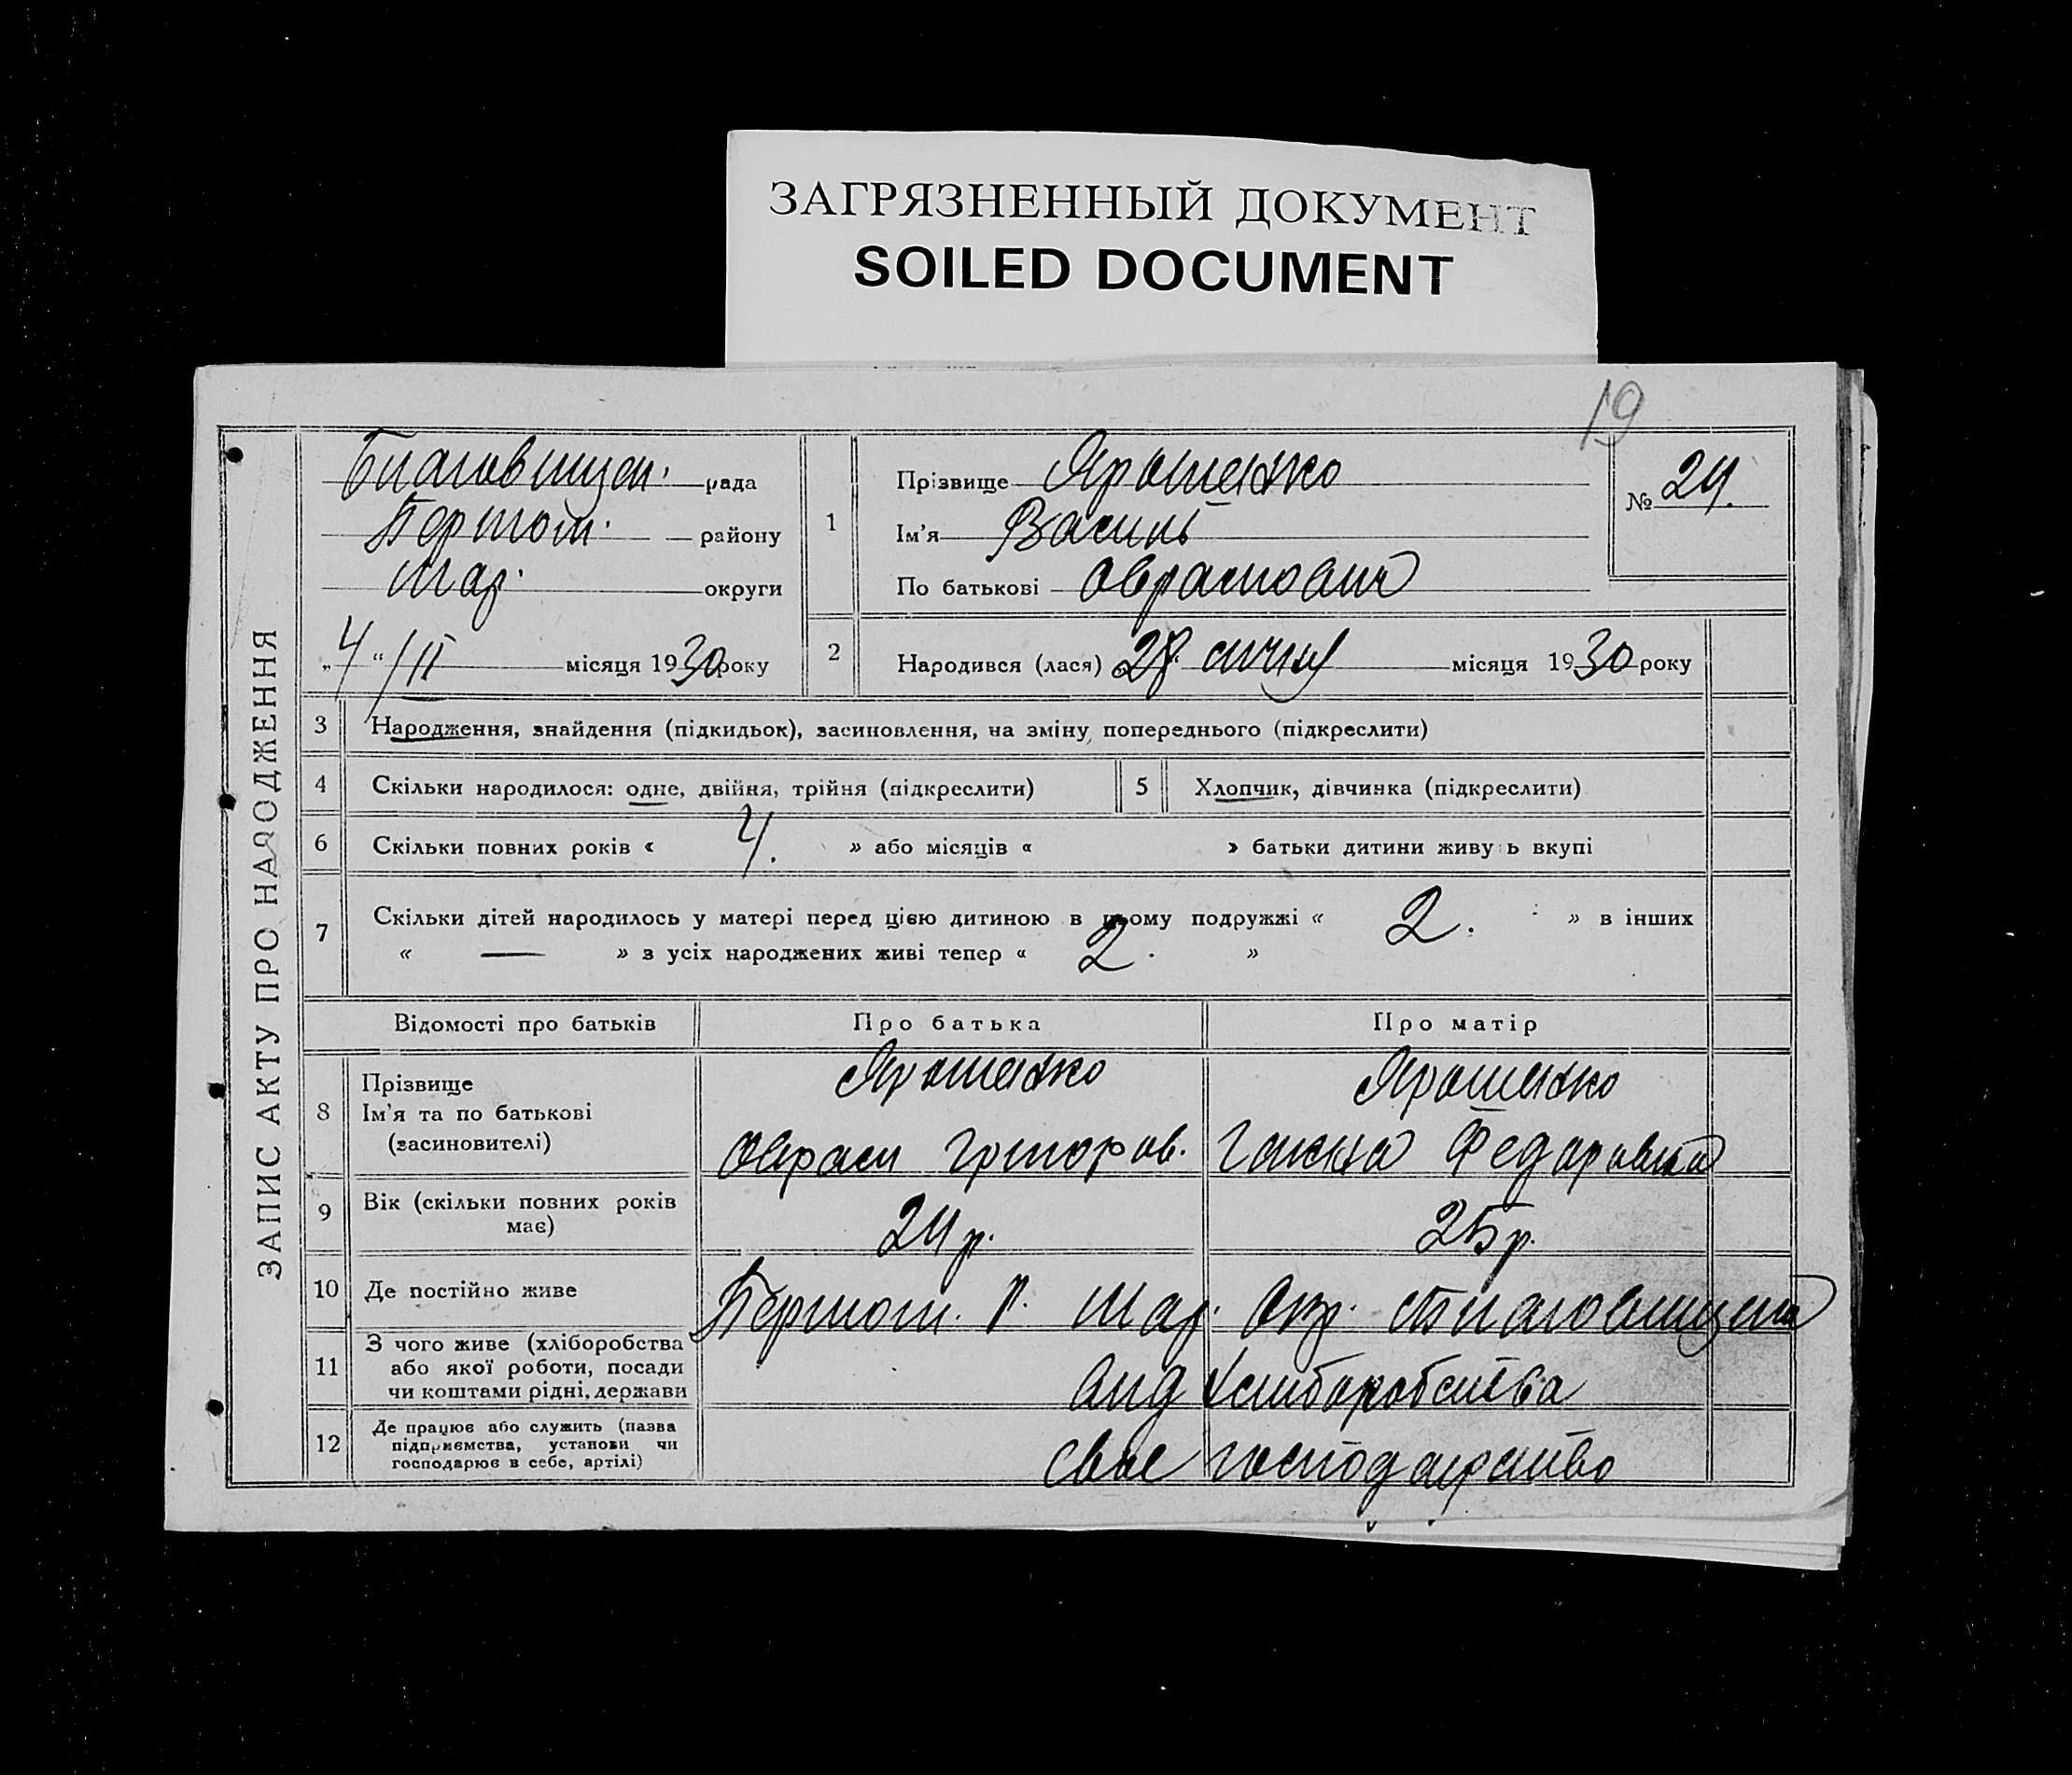 ЗАГРЯЗНЕННЫЙ ДОКУМЕНТ
SOILED DOCUMENT
19
ЗАПИС АКТУ ПРО НАРОДЖЕННЯ
Благовіщен. рада
району
Мар. округи
„4“/II місяця 1930 року
1
Прізвище Ярошенко
Ім'я Василь
По батькові Оврамович
№ 24.
2
Народився (лася) 28 січня місяця 1930 року
3 Народження, знайдення (підкидьок), засиновлення, на зміну попереднього (підкреслити)
4 Скільки народилося: одне, двійня, трійня (підкреслити)
5 Хлопчик, дівчинка (підкреслити)
6 Скільки повних років « 4. » або місяців « » батьки дитини живуть вкупі
7 Скільки дітей народилось у матері перед цією дитиною в цьому подружжі « 2. » в інших
« — » з усіх народжених живі тепер « 2. »
Відомості про батьків Про батька Про матір
8 Прізвище
Ім'я та по батькові
(засиновителі)
Ярошенко
Оврам Григоров.
Ярошенко
Ганна Федоровна
9 Вік (скільки повних років
має)
24 р.
25 р.
10 Де постійно живе
Р. Мар. Окр. Благовищен
11 З чого живе (хліборобства
або якої роботи, посади
чи коштами рідні, держави
від хліборобства
12 Де працює або служить (назва
підприємства, установи чи
господарює в себе, артілі)
своє господарство